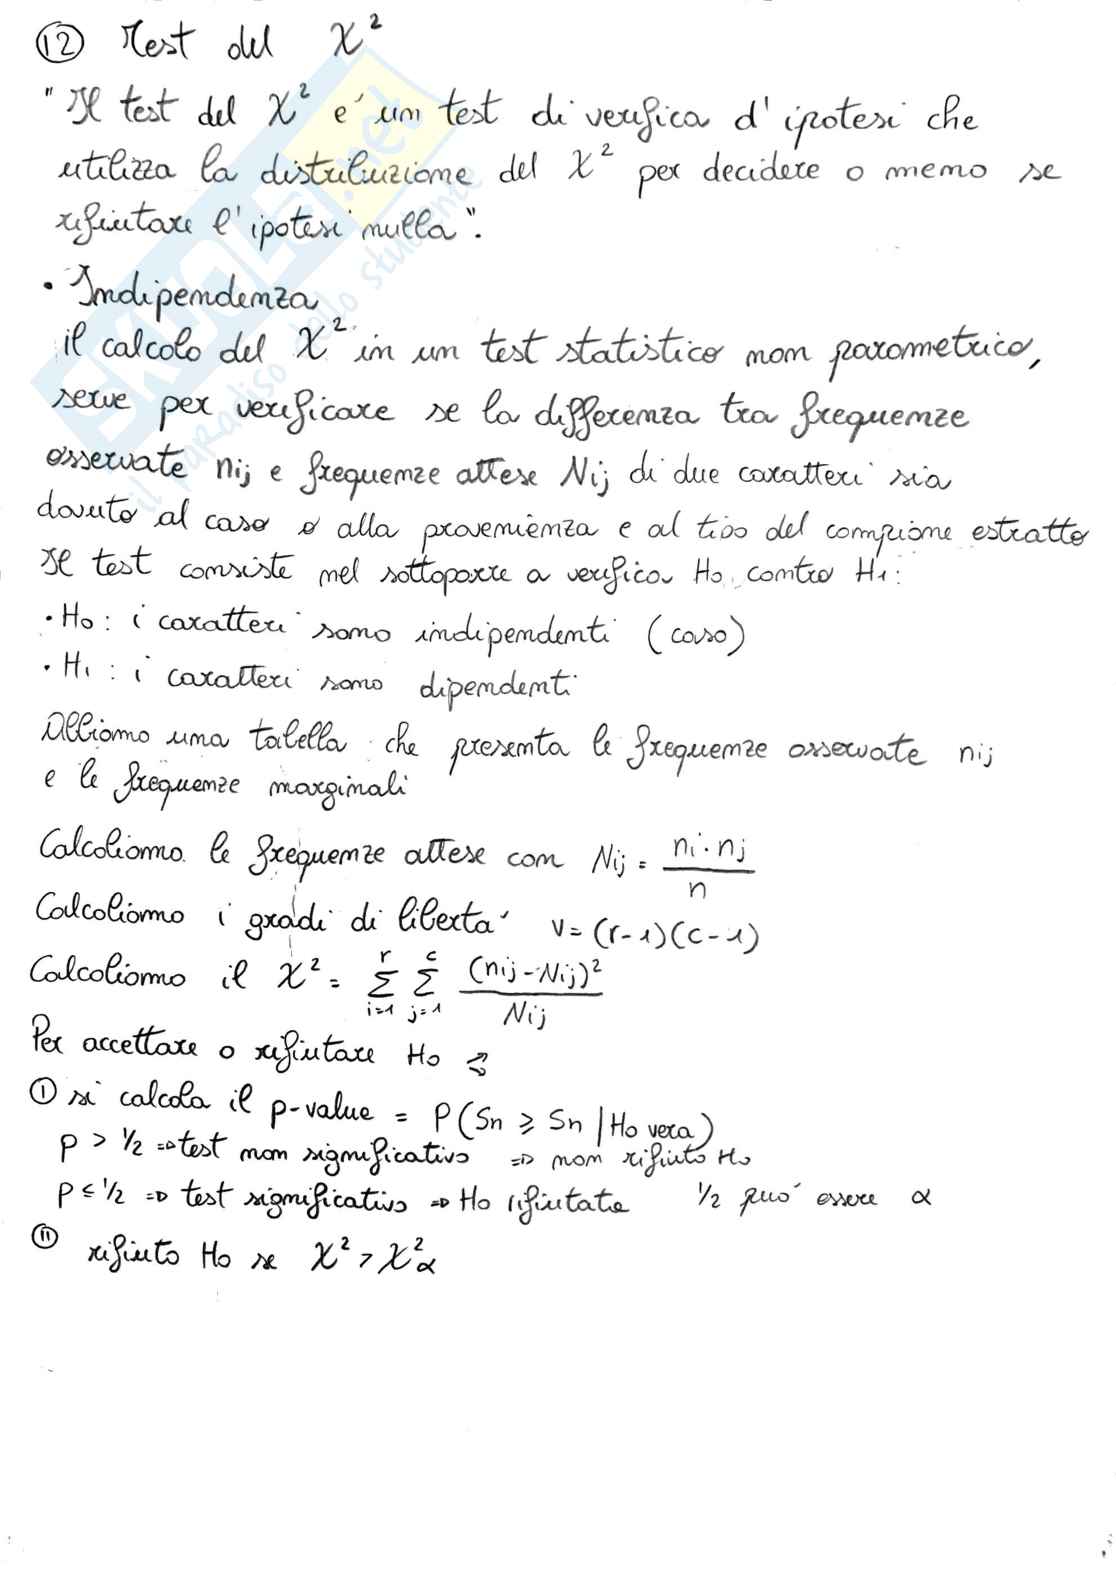 12 Test del χ²
"Il test del χ² e' un test di verifica d'ipotesi che
utilizza la distribuzione del χ² per decidere o meno se
rifiutare l'ipotesi nulla".
• Indipendenza
il calcolo del χ² in un test statistico non parametrico,
serve per verificare se la differenza tra frequenze
osservate nij e frequenze attese Nij di due caratteri sia
dovuto al caso o alla provenienza e al tipo del campione estratto
Il test consiste nel sottoporre a verifica H0 contro H1:
• H0: i caratteri sono indipendenti (caso)
• H1: i caratteri sono dipendenti
Abbiamo una tabella che presenta le frequenze osservate nij
e le frequenze marginali
Calcoliamo le frequenze attese con Nij = ni·nj / n
Calcoliamo i gradi di liberta' v=(r-1)(c-1)
Calcoliamo il χ² = Σ i=1 r Σ j=1 c (nij-Nij)² / Nij
Per accettare o rifiutare H0 ⇒
I si calcola il p-value = P(Sn ≥ Sn | H0 vera)
p > 1/2 ⇒ test non significativo ⇒ non rifiuto H0
p ≤ 1/2 ⇒ test significativo ⇒ H0 rifiutata 1/2 puo' essere α
II rifiuto H0 se χ² > χ²α
SKUOLA.net
il paradiso dello studente